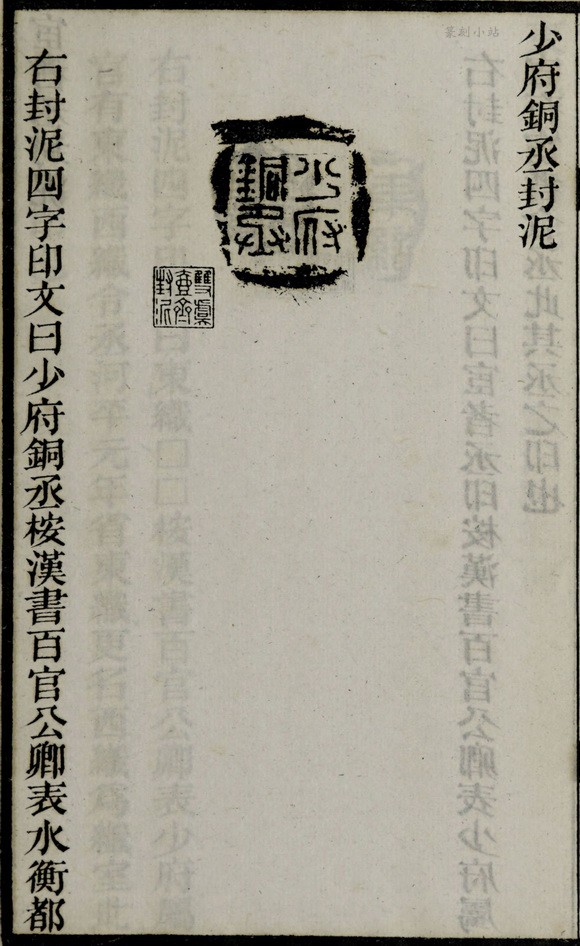 少府銅丞封泥
篆刻小站
少府
銅丞
雙虞
壺齋
封泥
右封泥四字印文曰少府銅丞桉漢書百官公卿表水衡都